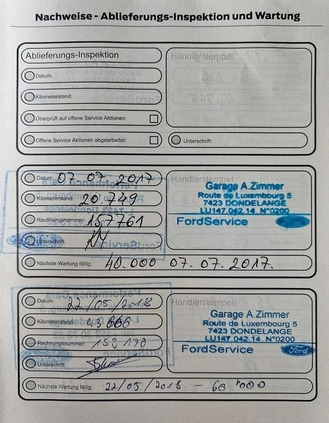 Nachweise - Ablieferungs-Inspektion und Wartung
Ablieferungs-Inspektion
Händlerstempel
Datum:
Kilometerstand:
Überprüft auf offene Service Aktionen:
Offene Service Aktionen abgearbeitet:
Unterschrift:
Datum: 07.07.2017
Händlerstempel
Kilometerstand: 20749
Rechnungsnummer: 157761
Unterschrift:
Garage A.Zimmer
Route de Luxembourg 5
7423 DONDELANGE
LU147.042.14. N°0200
FordService
Nächste Wartung fällig: 40.000 07.07.2017.
Datum: 22/05/2018
Händlerstempel
Kilometerstand: 43666
Rechnungsnummer:
Unterschrift:
Garage A.Zimmer
Route de Luxembourg 5
7423 DONDELANGE
LU147.042.14. N°0200
FordService
Ford
Nächste Wartung fällig: 22/05/2018 - 60 000